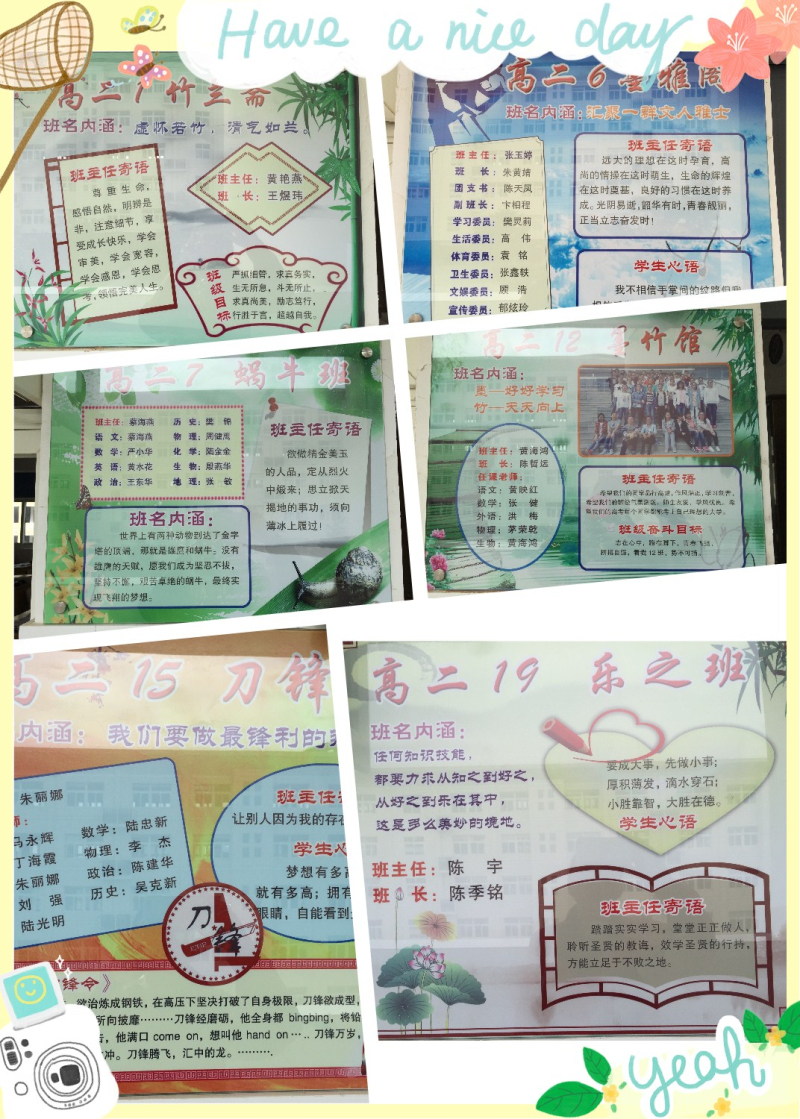 Have a nice day
高二1竹兰斋
班名内涵：虚怀若竹，清气如兰。
班主任寄语
尊重生命，
感悟自然，明辨是
非，注意细节，享
受成长快乐，学会
审美，学会宽容，
学会感恩，学会思
考，领悟完美人生。
班主任：黄艳燕
班 长：王煜玮
班级目标
严抓细管，求真务实，
生无所息，斗无所止，
求真尚美，励志笃行，
行胜于言，超越自我。
高二6墨雅阁
班名内涵：汇聚一群文人雅士
班主任：张玉婷
班 长：朱黄婧
团支书：陈天凤
副班长：卞相程
学习委员：樊灵莉
生活委员：高 伟
体育委员：袁 铭
卫生委员：张鑫轶
文娱委员：顾 浩
宣传委员：郁炫玲
班主任寄语
远大的理想在这时孕育，高
尚的情操在这时萌生，生命的辉煌
在这时奠基，良好的习惯在这时养
成。光阴易逝，韶华有时，青春靓丽，
正当立志奋发时！
学生心语
我不相信手掌间的纹路
高二7 蜗牛班
班主任：蔡海燕 历史：樊 锦
语文：蔡海燕 物理：周健嵩
数学：严小华 化学：陆金金
英语：黄水花 生物：殷燕华
政治：王东华 地理：张 敏
班主任寄语
欲做精金美玉
的人品，定从烈火
中煅来；思立掀天
揭地的事功，须向
薄冰上履过！
班名内涵：
世界上有两种动物到达了金字
塔的顶端，那就是雄鹰和蜗牛。没有
雄鹰的天赋，愿我们成为坚忍不拔，
坚持不懈，艰苦卓绝的蜗牛，最终实
现飞翔的梦想。
高二12 墨竹馆
班名内涵：
墨—好好学习
竹—天天向上
班主任：黄海鸿
班 长：陈哲远
任课老师：
语文：黄映红
数学：张 健
外语：洪 梅
物理：茅荣乾
生物：黄海鸿
班主任寄语
班级奋斗目标
志在心中，路在脚下，青春飞扬，
高二15 刀锋
内涵：我们要做最锋利的
朱丽娜
马永辉 数学：陆忠新
丁海霞 物理：李 杰
朱丽娜 政治：陈建华
刘 强 历史：吴克新
陆光明
班主任
让别人因为我的存
学生心
梦想有多高
就有多高；拥有
眼睛，自能看到
刀锋
锋令》
欲冶炼成钢铁，在高压下坚决打破了自身极限，刀锋欲成型，
所向披靡………刀锋经磨砺，他全身都 bingbing，将铅
击，他满口 come on，想叫他 hand on…..刀锋万岁，
冲。刀锋腾飞，汇中的龙。……….
高二19 乐之班
班名内涵：
任何知识技能，
都要力求从知之到好之，
从好之到乐在其中，
这是多么美妙的境地。
班主任：陈 宇
班 长：陈季铭
要成大事，先做小事；
厚积薄发，滴水穿石；
小胜靠智，大胜在德。
学生心语
班主任寄语
踏踏实实学习，堂堂正正做人，
聆听圣贤的教诲，效学圣贤的行持，
方能立足于不败之地。
yeah